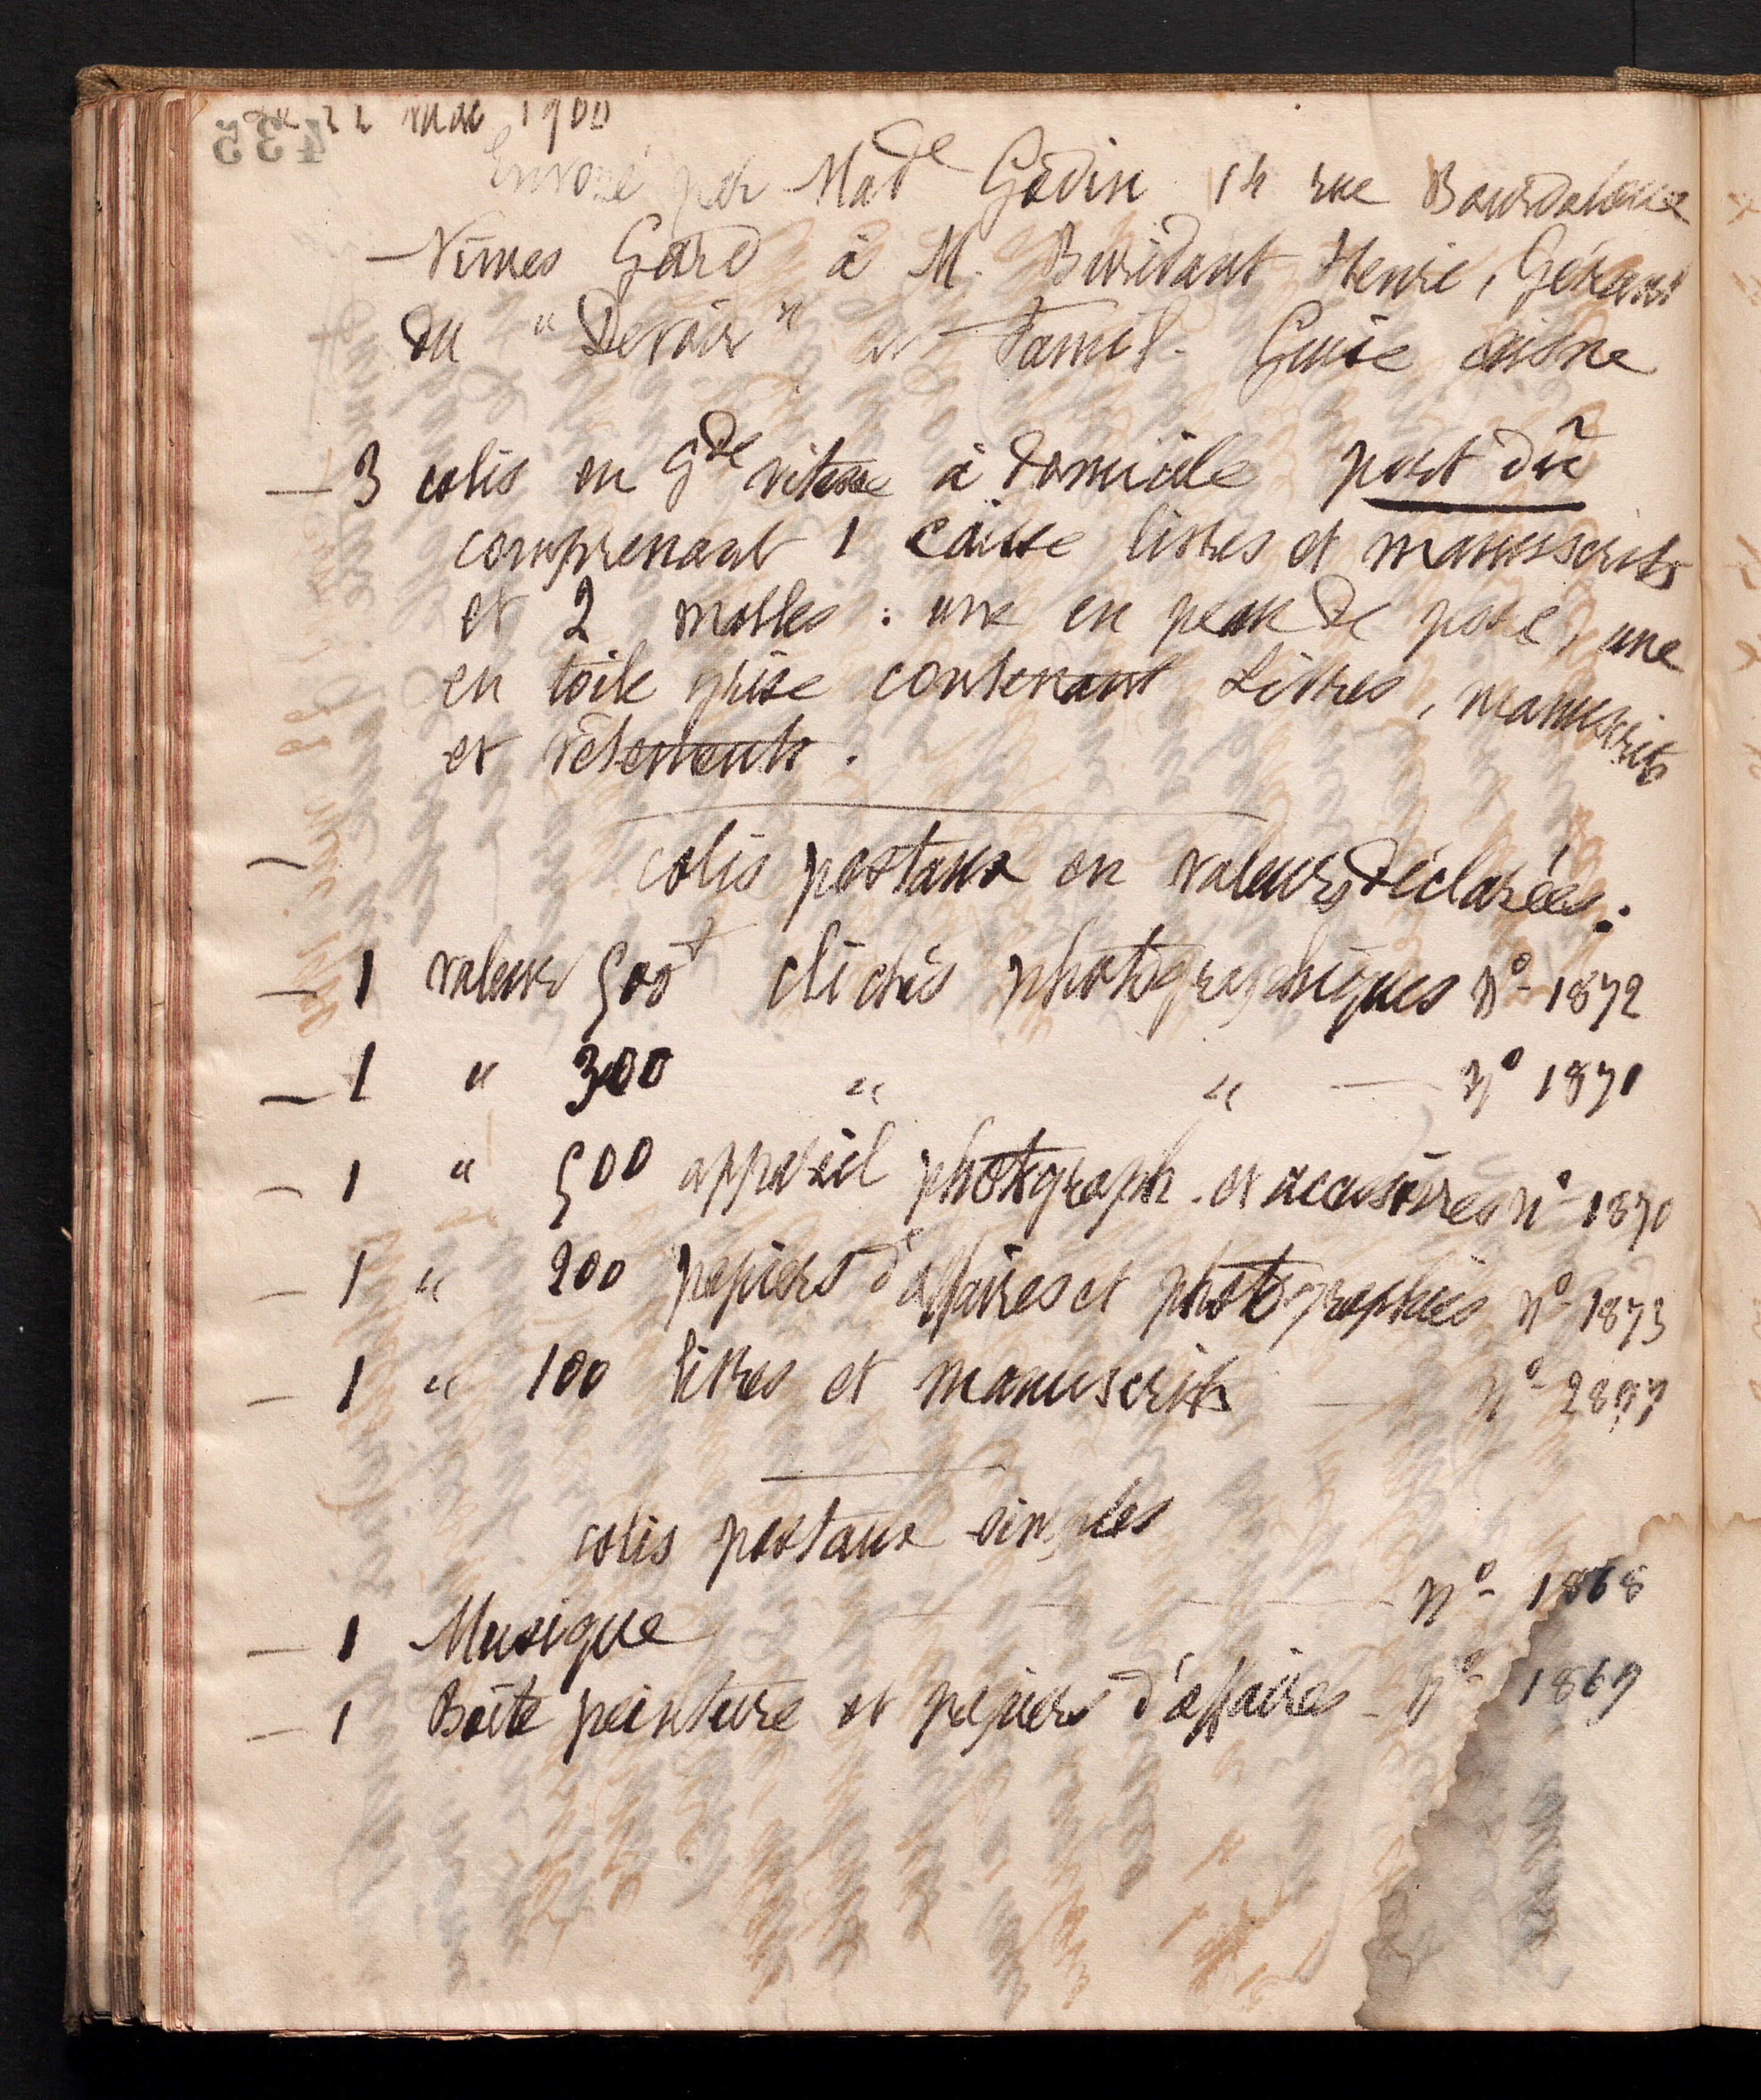 22 mai 1900
Envoyé par Made Godin 14 rue Bourdaloue
Nîmes Gard à M. Buridant Henri, Gérant
du "Devoir" au Famil. Guise Aisne
— 3 colis en Gde vitesse à domicile port dû
comprenant 1 caisse livres et manuscrits
et 2 malles : une en peau de porc, une
en toile grise contenant Livres, manuscrits
et vêtements.
— colis postaux en valeurs déclarées.
— 1 valeur 500f clichés photographiques No 1872
— 1 " 300 " " — no 1871
— 1 " 500 appareil photograph. et accessoires no 1870
— 1 " 200 papiers d'affaires et photographies No 1873
— 1 " 100 livres et manuscrits — No
colis postaux simples
— 1 Musique — No 1868
— 1 Boîte peinture et papiers d'affaires — No 1869
435